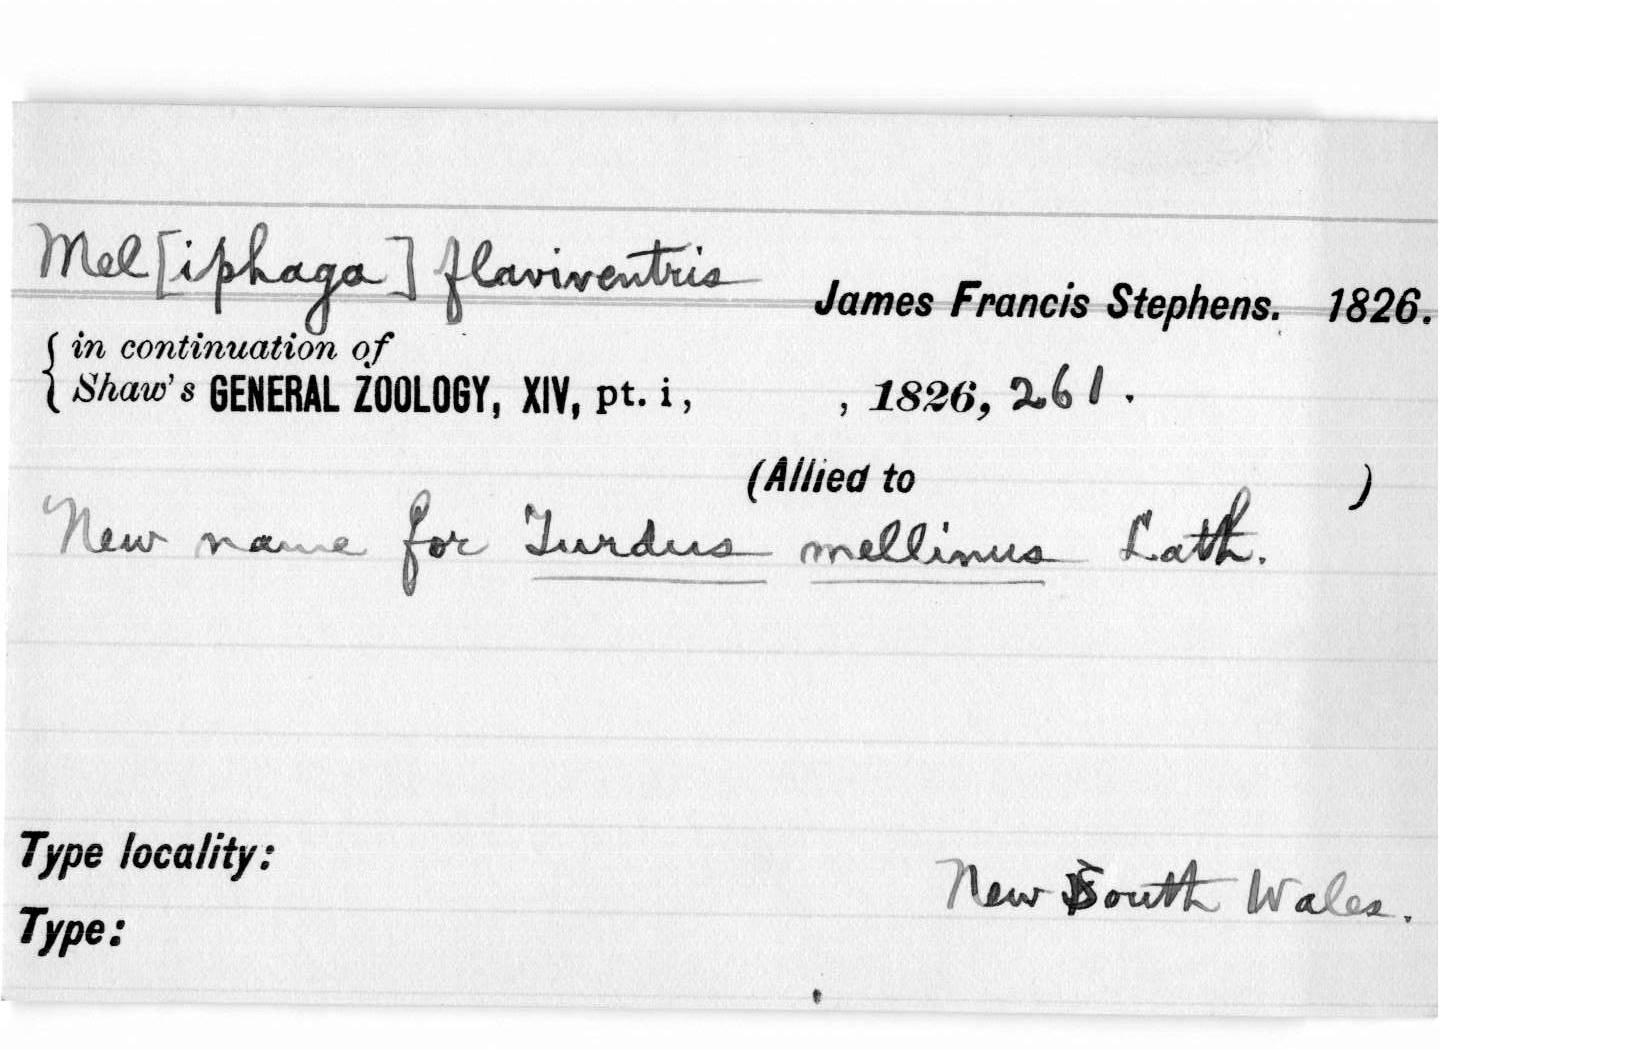 Mel[iphaga] flaviventris
James Francis Stephens. 1826.
in continuation of
Shaw's GENERAL ZOOLOGY, XIV, pt. i, , 1826, 261.
(Allied to )
New name for Turdus mellinus Lath.
Type locality:
New South Wales.
Type: